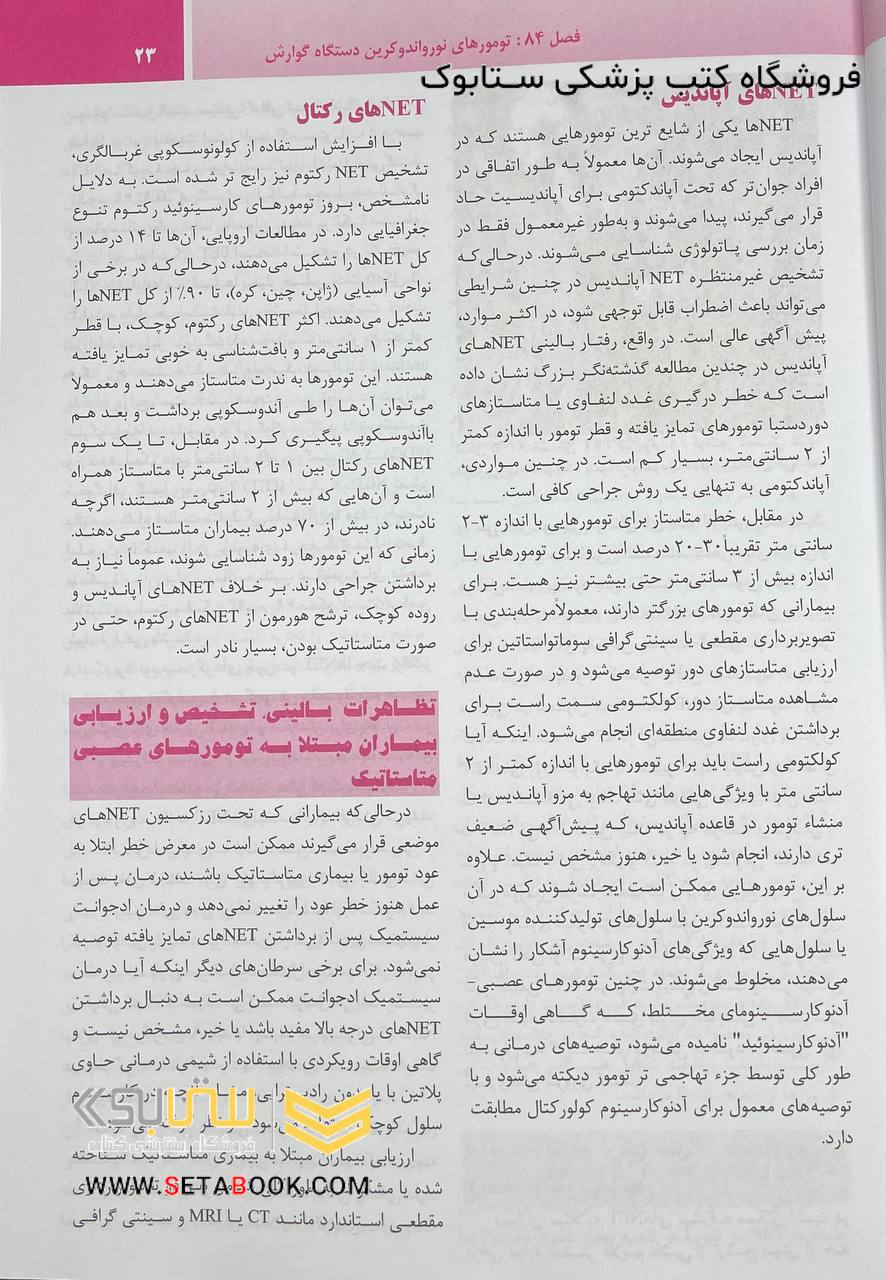 ۲۳
فصل ۸۴: تومورهای نورواندوکرین دستگاه گوارش
فروشگاه کتب پزشکی ستابوک
NETهای آپاندیس
NETها یکی از شایع ترین تومورهایی هستند که در
آپاندیس ایجاد می‌شوند. آن‌ها معمولاً به طور اتفاقی در
افراد جوان‌تر که تحت آپاندکتومی برای آپاندیسیت حاد
قرار می‌گیرند، پیدا می‌شوند و به‌طور غیرمعمول فقط در
زمان بررسی پاتولوژی شناسایی می‌شوند. درحالی‌که
تشخیص غیرمنتظره NET آپاندیس در چنین شرایطی
می‌تواند باعث اضطراب قابل توجهی شود، در اکثر موارد،
پیش آگهی عالی است. در واقع، رفتار بالینی NETهای
آپاندیس در چندین مطالعه گذشته‌نگر بزرگ نشان داده
است که خطر درگیری غدد لنفاوی یا متاستازهای
دوردستبا تومورهای تمایز یافته و قطر تومور با اندازه کمتر
از ۲ سانتی‌متر، بسیار کم است. در چنین مواردی،
آپاندکتومی به تنهایی یک روش جراحی کافی است.
در مقابل، خطر متاستاز برای تومورهایی با اندازه ۳-۲
سانتی متر تقریباً ۳۰-۲۰ درصد است و برای تومورهایی با
اندازه بیش از ۳ سانتی‌متر حتی بیشتر نیز هست. برای
بیمارانی که تومورهای بزرگتر دارند، معمولاًمرحله‌بندی با
تصویربرداری مقطعی یا سینتی‌گرافی سوماتواستاتین برای
ارزیابی متاستازهای دور توصیه می‌شود و در صورت عدم
مشاهده متاستاز دور، کولکتومی سمت راست برای
برداشتن غدد لنفاوی منطقه‌ای انجام می‌شود. اینکه آیا
کولکتومی راست باید برای تومورهایی با اندازه کمتر از ۲
سانتی متر با ویژگی‌هایی مانند تهاجم به مزو آپاندیس یا
منشاء تومور در قاعده آپاندیس، که پیش‌آگهی ضعیف
تری دارند، انجام شود یا خیر، هنوز مشخص نیست. علاوه
بر این، تومورهایی ممکن است ایجاد شوند که در آن
سلول‌های نورواندوکرین با سلول‌های تولیدکننده موسین
یا سلول‌هایی که ویژگی‌های آدنوکارسینوم آشکار را نشان
می‌دهند، مخلوط می‌شوند. در چنین تومورهای عصبی-
آدنوکارسینومای مختلط، که گاهی اوقات
"آدنوکارسینوئید" نامیده می‌شود، توصیه‌های درمانی به
طور کلی توسط جزء تهاجمی تر تومور دیکته می‌شود و با
توصیه‌های معمول برای آدنوکارسینوم کولورکتال مطابقت
دارد.
NETهای رکتال
با افزایش استفاده از کولونوسکوپی غربالگری،
تشخیص NET رکتوم نیز رایج تر شده است. به دلایل
نامشخص، بروز تومورهای کارسینوئید رکتوم تنوع
جغرافیایی دارد. در مطالعات اروپایی، آن‌ها تا ۱۴ درصد از
کل NETها را تشکیل می‌دهند، درحالی‌که در برخی از
نواحی آسیایی (ژاپن، چین، کره)، تا ۹۰٪ از کل NETها را
تشکیل می‌دهند. اکثر NETهای رکتوم، کوچک، با قطر
کمتر از ۱ سانتی‌متر و بافت‌شناسی به خوبی تمایز یافته
هستند. این تومورها به ندرت متاستاز می‌دهند و معمولاً
می‌توان آن‌ها را طی آندوسکوپی برداشت و بعد هم
باآندوسکوپی پیگیری کرد. در مقابل، تا یک سوم
NETهای رکتال بین ۱ تا ۲ سانتی‌متر با متاستاز همراه
است و آن‌هایی که بیش از ۲ سانتی‌متر هستند، اگرچه
نادرند، در بیش از ۷۰ درصد بیماران متاستاز می‌دهند.
زمانی که این تومورها زود شناسایی شوند، عموماً نیاز به
برداشتن جراحی دارند. بر خلاف NETهای آپاندیس و
روده کوچک، ترشح هورمون از NETهای رکتوم، حتی در
صورت متاستاتیک بودن، بسیار نادر است.
تظاهرات بالینی، تشخیص و ارزیابی
بیماران مبتلا به تومورهای عصبی
متاستاتیک
درحالی‌که بیمارانی که تحت رزکسیون NETهای
موضعی قرار می‌گیرند ممکن است در معرض خطر ابتلا به
عود تومور یا بیماری متاستاتیک باشند، درمان پس از
عمل هنوز خطر عود را تغییر نمی‌دهد و درمان ادجوانت
سیستمیک پس از برداشتن NETهای تمایز یافته توصیه
نمی‌شود. برای برخی سرطان‌های دیگر اینکه آیا درمان
سیستمیک ادجوانت ممکن است به دنبال برداشتن
NETهای درجه بالا مفید باشد یا خیر، مشخص نیست و
گاهی اوقات رویکردی با استفاده از شیمی درمانی حاوی
پلاتین با یا بدون
سلول کوچک
ارزیابی بیماران مبتلا به بیماری متاستاتیک شناخته
شده یا
مقطعی استاندارد مانند CT یا MRI و سینتی گرافی
ستابوک
فروشگاه اینترنتی کتاب
WWW.SETABOOK.COM